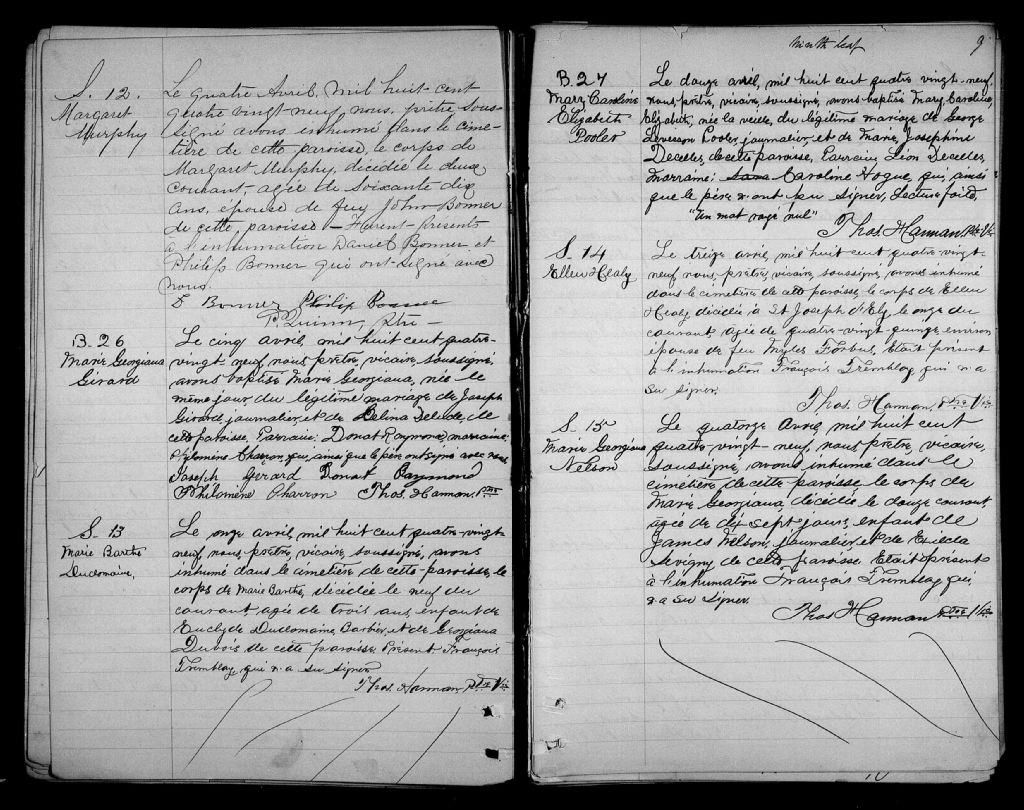 S. 12.
Margaret
Murphy
Le quatre Avril, mil huit-cent
quatre vingt neuf, nous, prêtre sous-
signé avons inhumé dans le cime-
tière de cette paroisse, le corps de
Margaret Murphy, décédée le deux
courant-agée de soixante dix
ans, épouse de feu John Bonner
de cette, paroisse - Furent-présents
à l'inhumation Daniel Bonner et
Philip Bonner qui ont-signé avec
nous.
D Bonner Philip Bonner
P. Quinn, Ptre-
B. 26
Marie Georgiana
Girard
Le cinq avril, mil huit cent quatre-
vingt neuf, nous prêtre, vicaire, soussigné,
avons baptisé Marie Georgiana, née le
même jour, du légitime mariage de Joseph
Girard, journalier, et de Delina de
cette paroisse, Parrain: Donat Raymond, marraine:
Phylomène Charron, qui, ainsi que le père ont signé avec nous
Joseph Gerard Donat Raymond
Philomène Charron Thos. Hannan, Ptre
S. 13
Marie Barthe
Duclomaine,
Le onze avril, mil huit cent quatre-vingt
neuf, nous, prêtre, vicaire, soussigné, avons
inhumé dans le cimetière de cette paroisse, le
corps de Marie Barthe, décédée le neuf du
courant agée de trois ans, enfant de
Euclyde Duclomaine, Barbier, et de Georgiana
Dubois de cette paroisse Présent François
Tremblay qui n'a su signer
Thos. Hannan Ptre Vic
Ninth leaf 9
B. 27
Mary Caroline
Elizabeth
Pooler
Le douze avril, mil huit cent quatre vingt-neuf,
nous, prêtre, vicaire, soussigné, avons baptisé Mary Caroline
Elizabeth, née la veille, du légitime mariage de George
Levisson Pooler, journalier, et de Marie Josephine
Decelles, de cette paroisse, Parrain, Léon Decelles,
marraine: Caroline Hogue, qui, ainsi
que le père n'ont pu signer, Lecture faite,
"Un mot rayé nul"
Thos. Hannan, Ptre Vic
S. 14
Ellen Healy
Le treize avril, mil huit cent quatre vingt-
neuf, nous prêtre, vicaire, soussigné, avons inhumé
dans le cimetière de cette paroisse, le corps de Ellen
Healy, décédée à St Joseph d'Ely, le onze du
courant agée de quatre-vingt-quinze, environ
épouse de feu Myles Forbes, Etait présent
à l'inhumation François Tremblay qui n'a
su signer.
Thos. Hannon, Ptre Vic
S. 15
Marie Georgiana
Nelson
Le quatorze Avril, mil huit cent
quatre-vingt-neuf, nous prêtre, vicaire,
soussigné, avons inhumé dans le
cimetière de cette paroisse le corps de
Marie Georgiana, décédée le douze courant,
agée de dix sept jours, enfant de
James Nelson, journalier, et de Exilda
Sevigny, de cette paroisse. Etait présent
à l'inhumation François Tremblay qui
n'a su signer.
Thos Hannan Ptre Vic
10